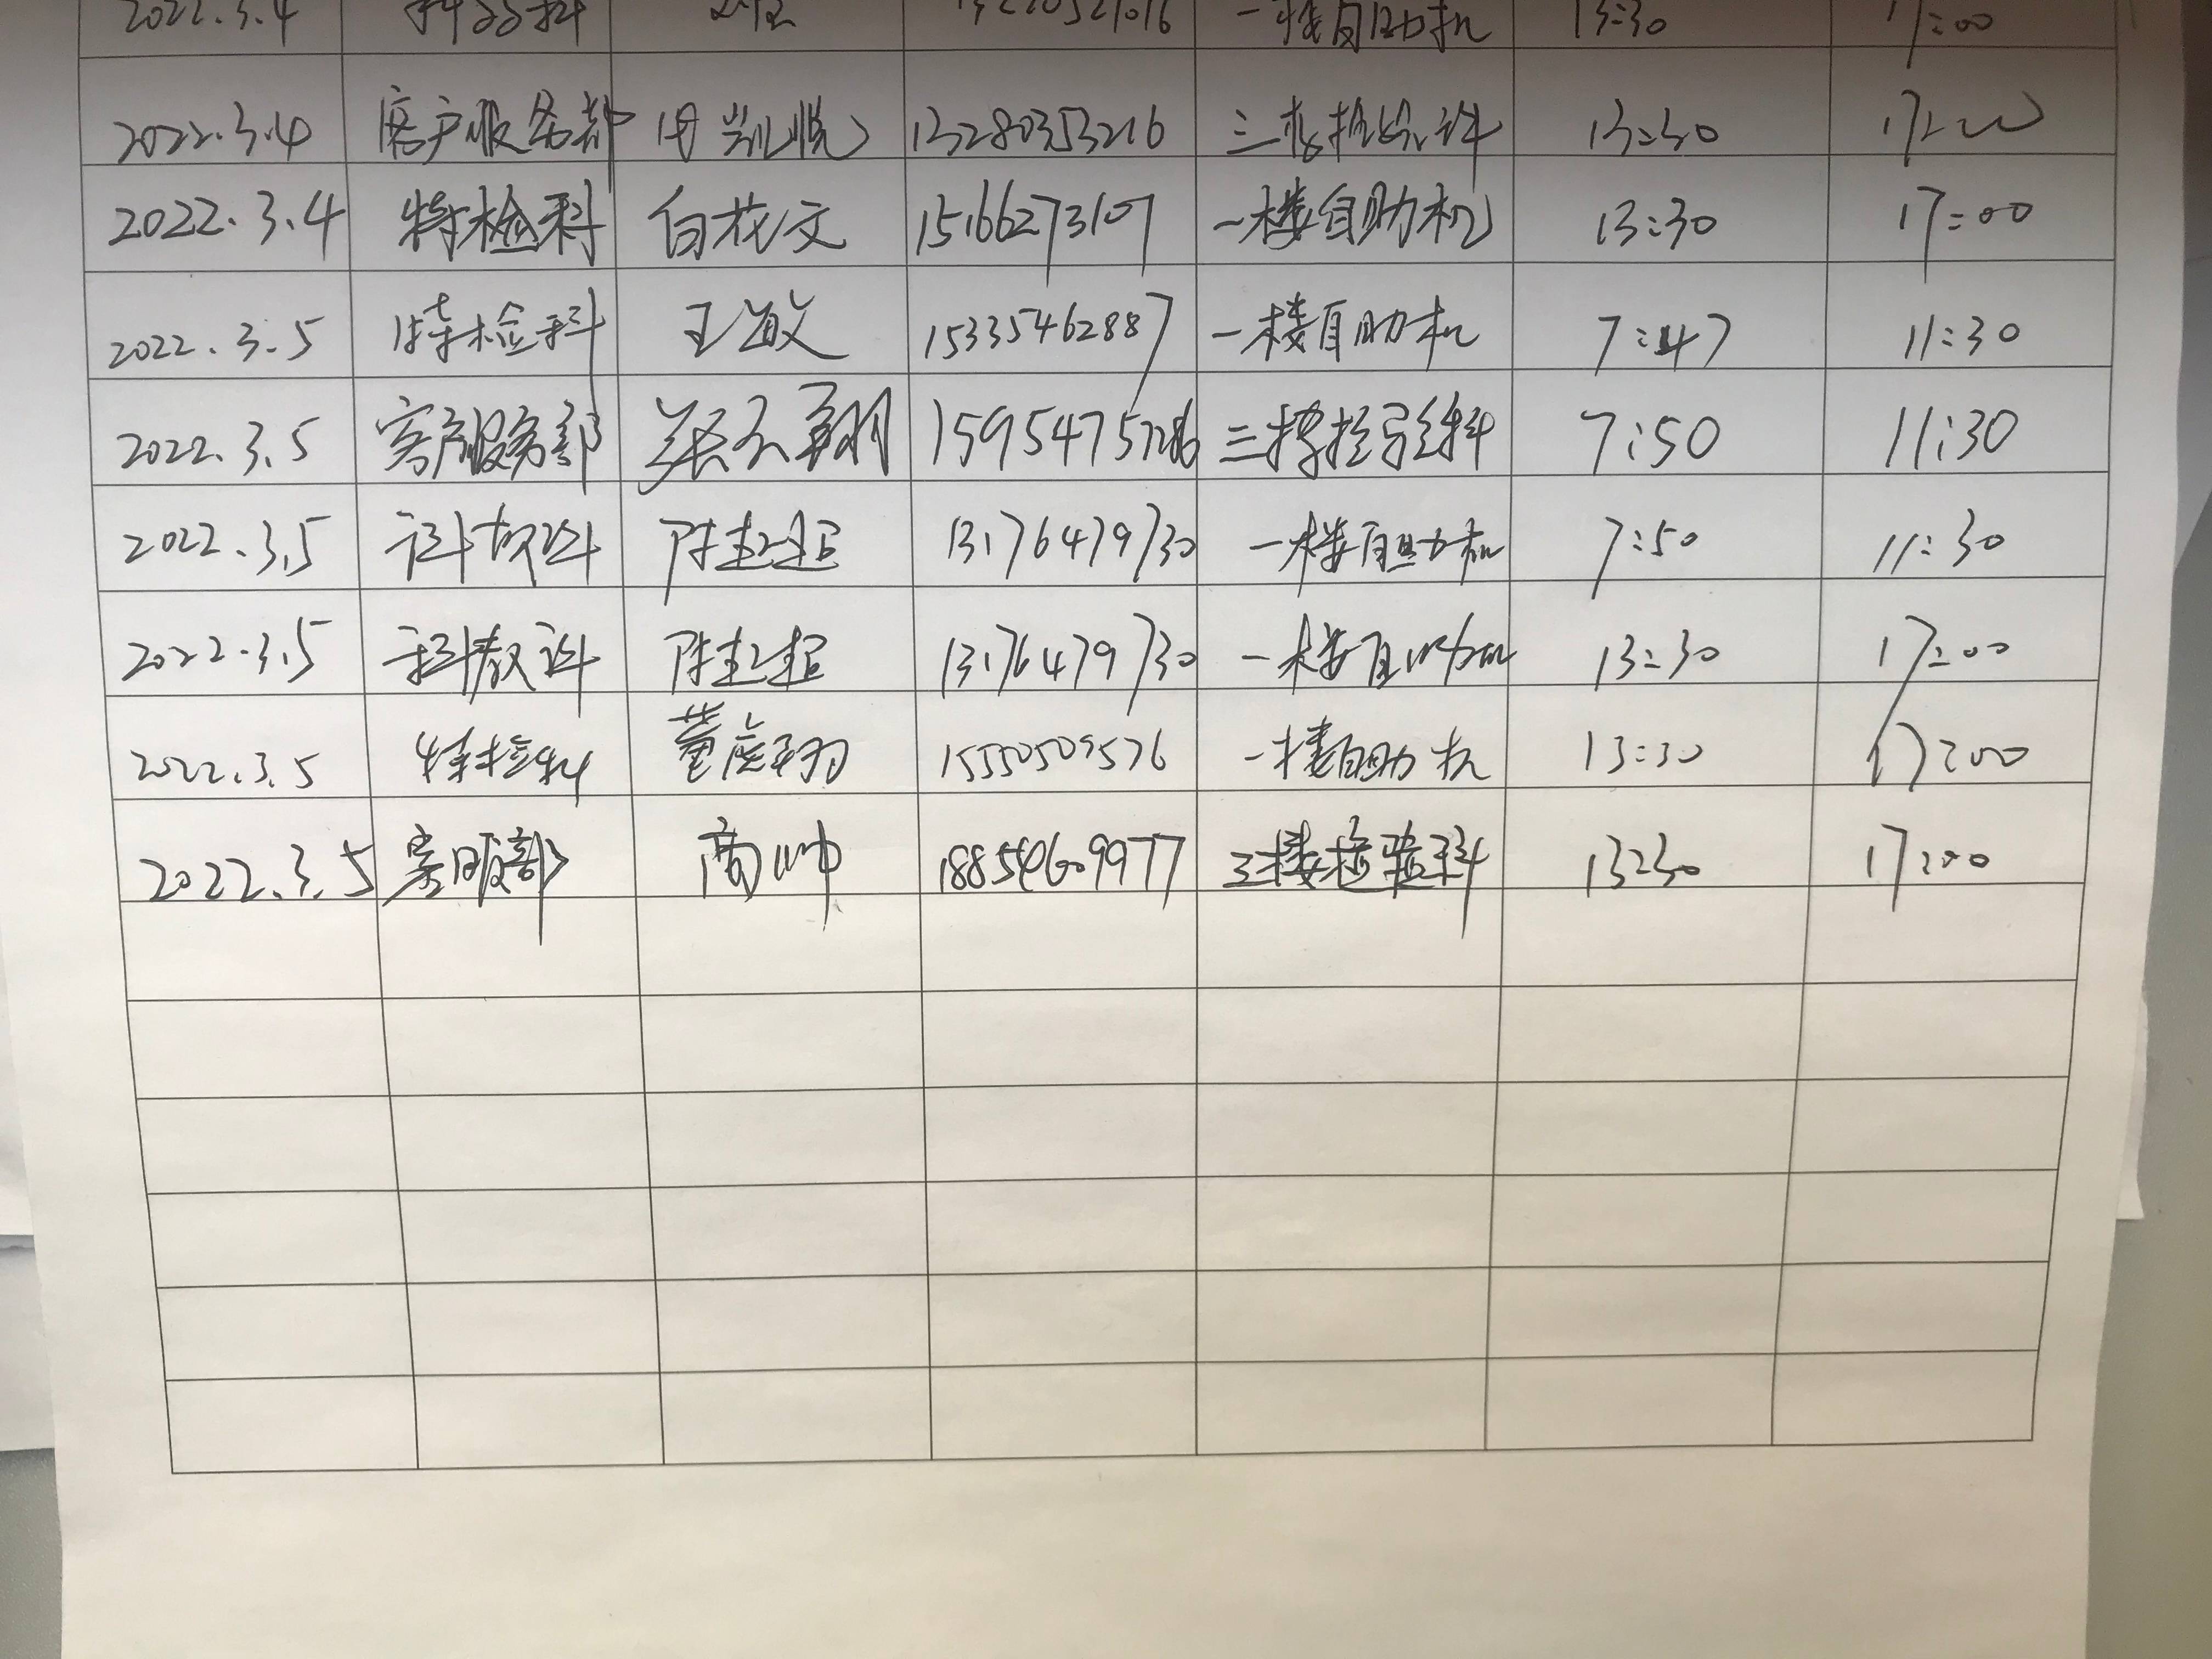 2022.3.4 一楼自助机 13:30 17:00
2022.3.4 客户服务部 田凯悦 13280353216 三楼检验科 13:30 17:00
2022.3.4 特检科 白花文 15166273107 一楼自助机 13:30 17:00
2022.3.5 特检科 王敏 15335462887 一楼自助机 7:47 11:30
2022.3.5 客户服务部 三楼检验科 7:50 11:30
2022.3.5 科教科 13176479730 一楼自助机 7:50 11:30
2022.3.5 科教科 13176479730 一楼自助机 13:30 17:00
2022.3.5 特检科 一楼自助机 13:30 17:00
2022.3.5 客服部 商帅 18854609977 三楼检验科 13:30 17:00